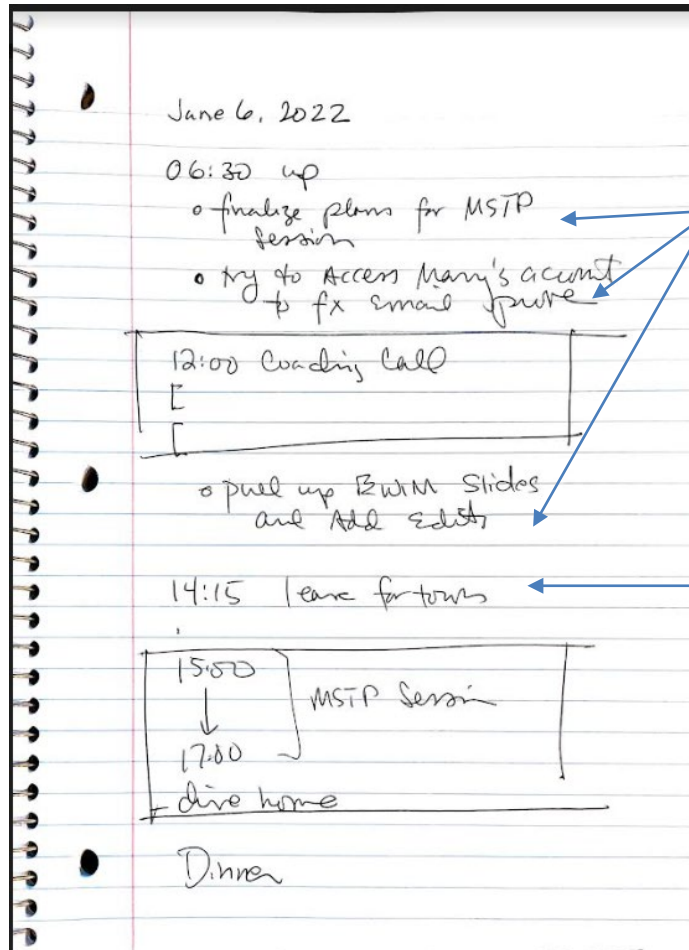 June 6, 2022
06:30 up
o finalize plans for MSTP
session
• try to Access Mary's account
to fx email
12:00 Coaching Call
[
[
o pull up BWIM Slides
and Add Edits
14:15 leave for town
15:00
↓
MSTP Session
17:00
drive home
Dinner